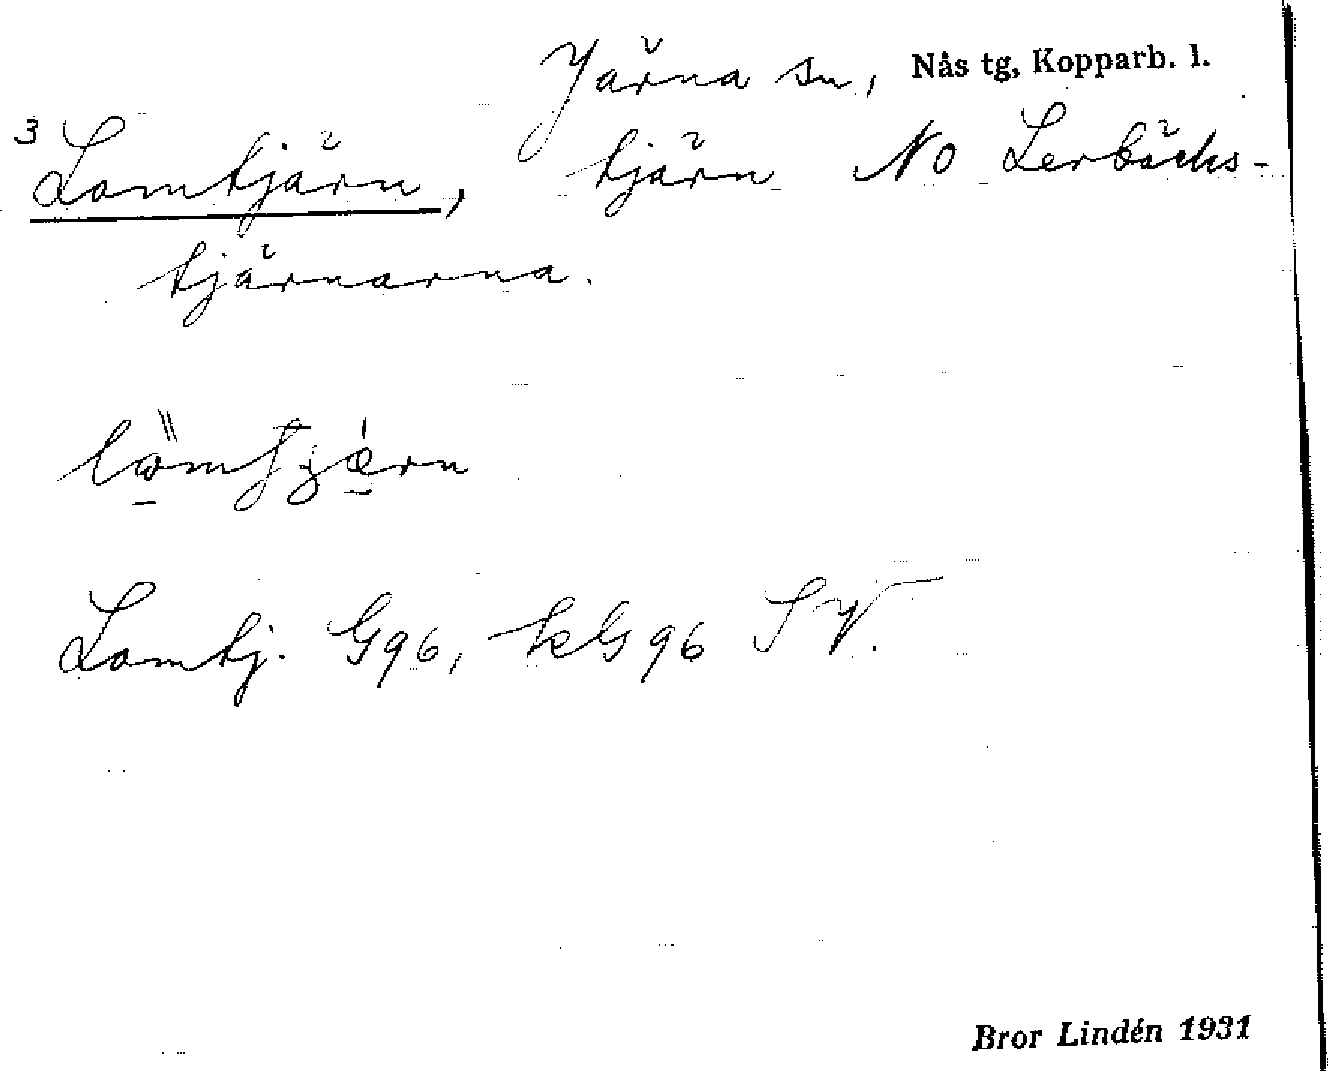 Järna sn, Nås tg, Kopparb. l.
3 Lomtjärn, tjärn NO Lerbäcks-
tjärnarna.
Lomtj. G96, kG96 SV.
Bror Lindén 1931